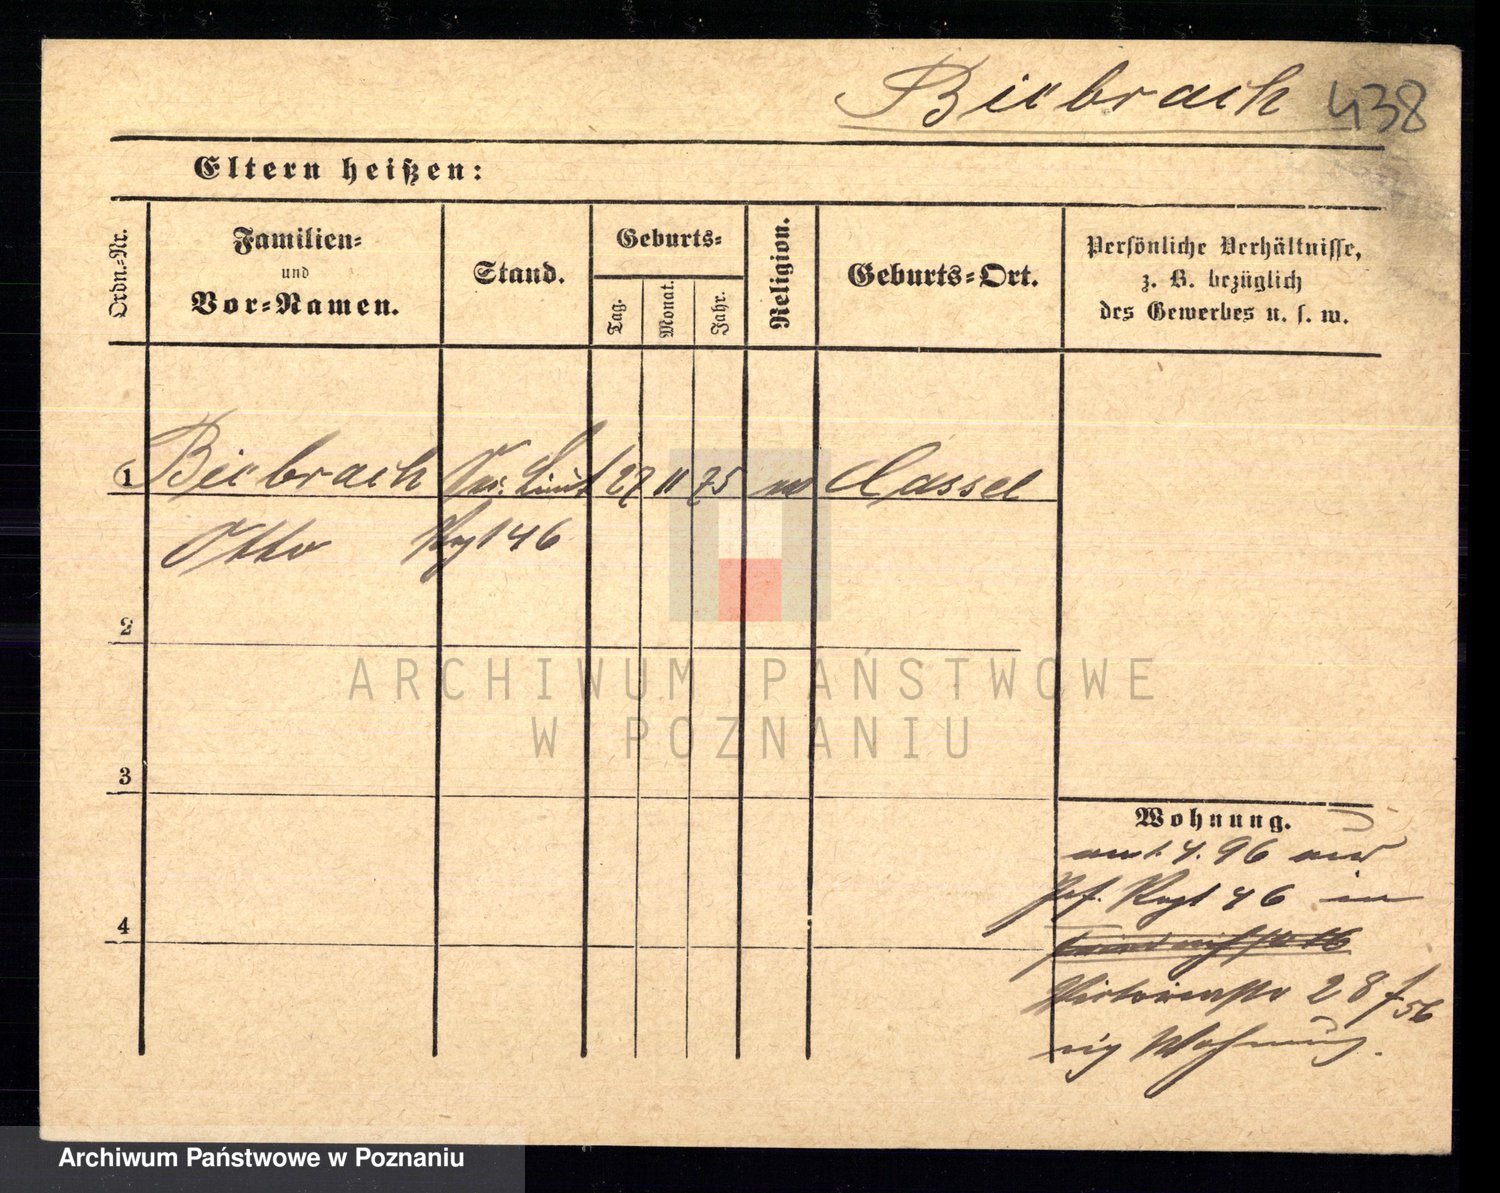 Biebrach 438
Eltern heißen:
Ordn.-Nr.
Familien-
und
Vor-Namen.
Stand.
Geburts-
Tag.
Monat.
Jahr.
Religion.
Geburts-Ort.
Persönliche Verhältnisse,
z. B. bezüglich
des Gewerbes u. s. w.
1 Biebrach Sec. Lieut 27 11 75 ev Cassel
Otto Rgt 46
2
3
4
Wohnung.
1. 4. 96
Rgt 46 in
Victoriastr 28
56
eig Wohnung.
ARCHIWUM PAŃSTWOWE
W POZNANIU
Archiwum Państwowe w Poznaniu